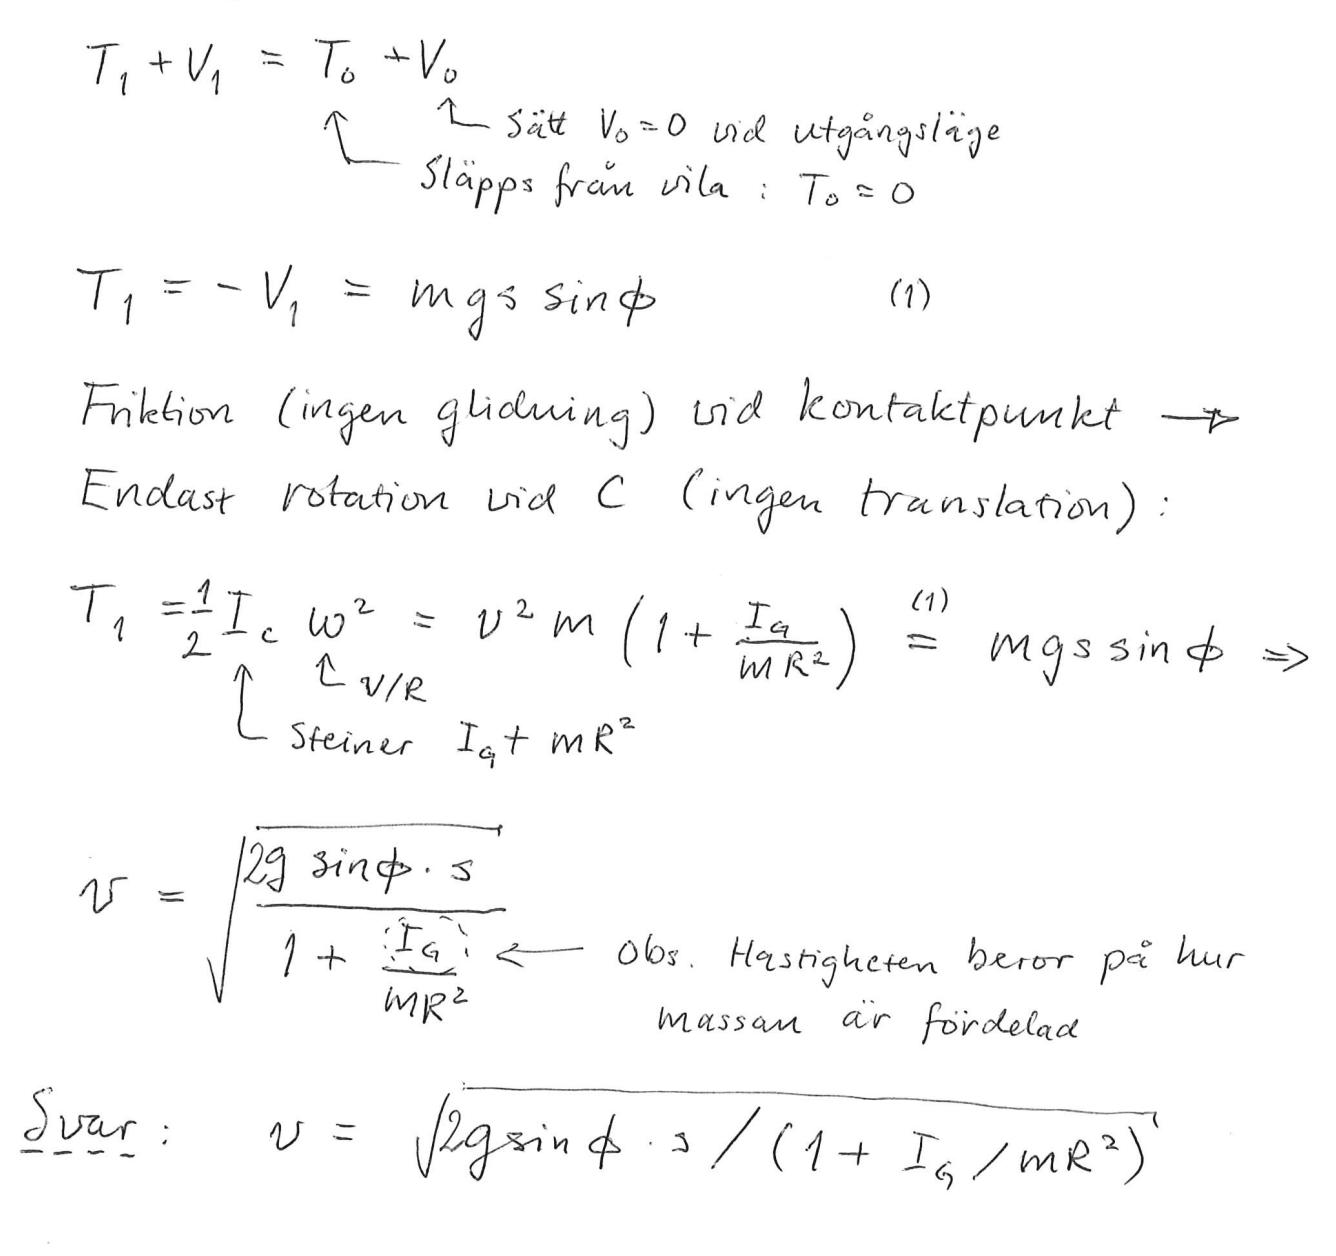 T₁ + V₁ = T₀ + V₀
Sätt V₀ = 0 vid utgångsläge
Släpps från vila : T₀ = 0
T₁ = - V₁ = mgs sinϕ (1)
Friktion (ingen glidning) vid kontaktpunkt →
Endast rotation vid C (ingen translation) :
T₁ = 1/2 I_c ω² = v² m (1 + I_G/mR²) (1)= mgs sinϕ ⇒
v/R
Steiner I_G + mR²
v = √(2g sinϕ · s / (1 + I_G/mR²)) ← Obs. Hastigheten beror på hur
massan är fördelad
Svar : v = √(2g sinϕ · s / (1 + I_G / mR²))